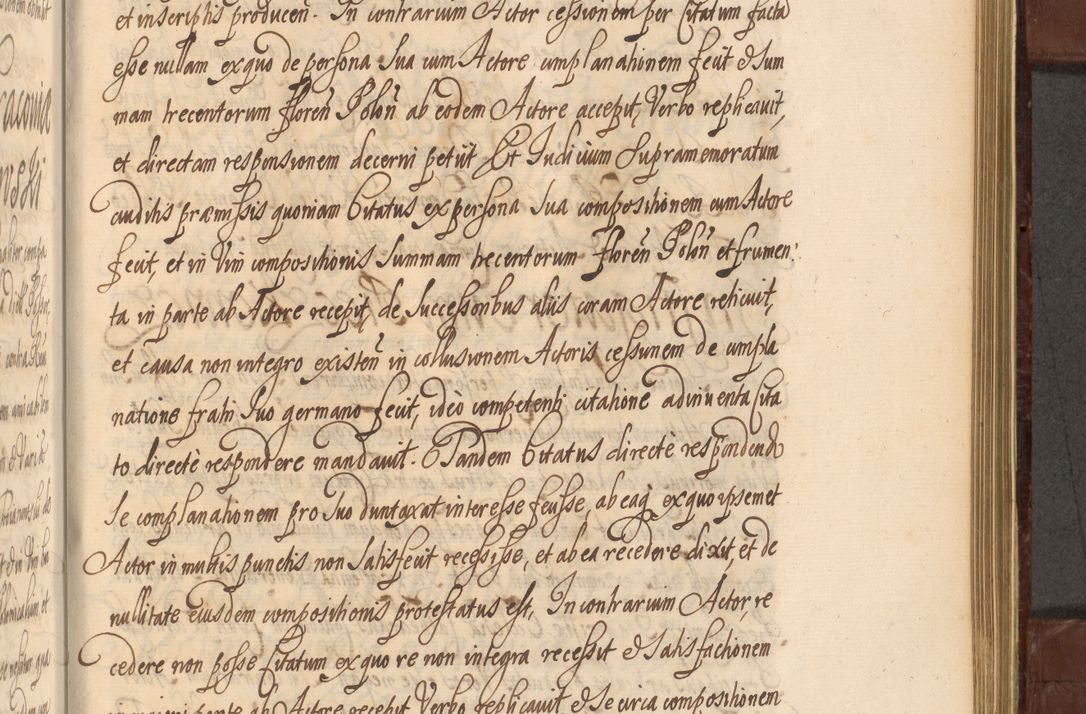 et in scriptis producen. In contrarium Actor cessionem per Citatum facta
esse nullam ex quo de persona sua cum Actore complanationem fecit & Sum
mam trecentorum floren Polon ab eodem Actore accepit, Verbo replicavit,
et directam responsionem decerni petiit Et Judicium Supramemoratum
auditis præmissis quoniam Citatus ex persona sua compositionem cum Actore
fecit, et in Vim compositionis Summam trecentorum floren Polon et frumen:
ta in parte ab Actore recepit, de Successoribus aliis coram Actore reticuit,
et causa non integro existen in collusionem Actoris cessionem de compla
natione fratri Suo germano fecit, ideo competenti citatione adinventa Cita
to directè respondere mandavit. Tandem Citatus directè respondendo
Se complanationem pro Suo duntaxat interesse fecisse, ab eaq ex quo ipsemet
Actor in multis punctis non satisfecit recessisse, et ab ea recedere dixit, et de
nullitate eiusdem compositionis protestatus est, In contrarium Actor re
cedere non posse Citatum ex quo re non integra recessit & Satisfactionem
in maiori parte ab Actore recepit Verbo replicavit & Se circa compositionem